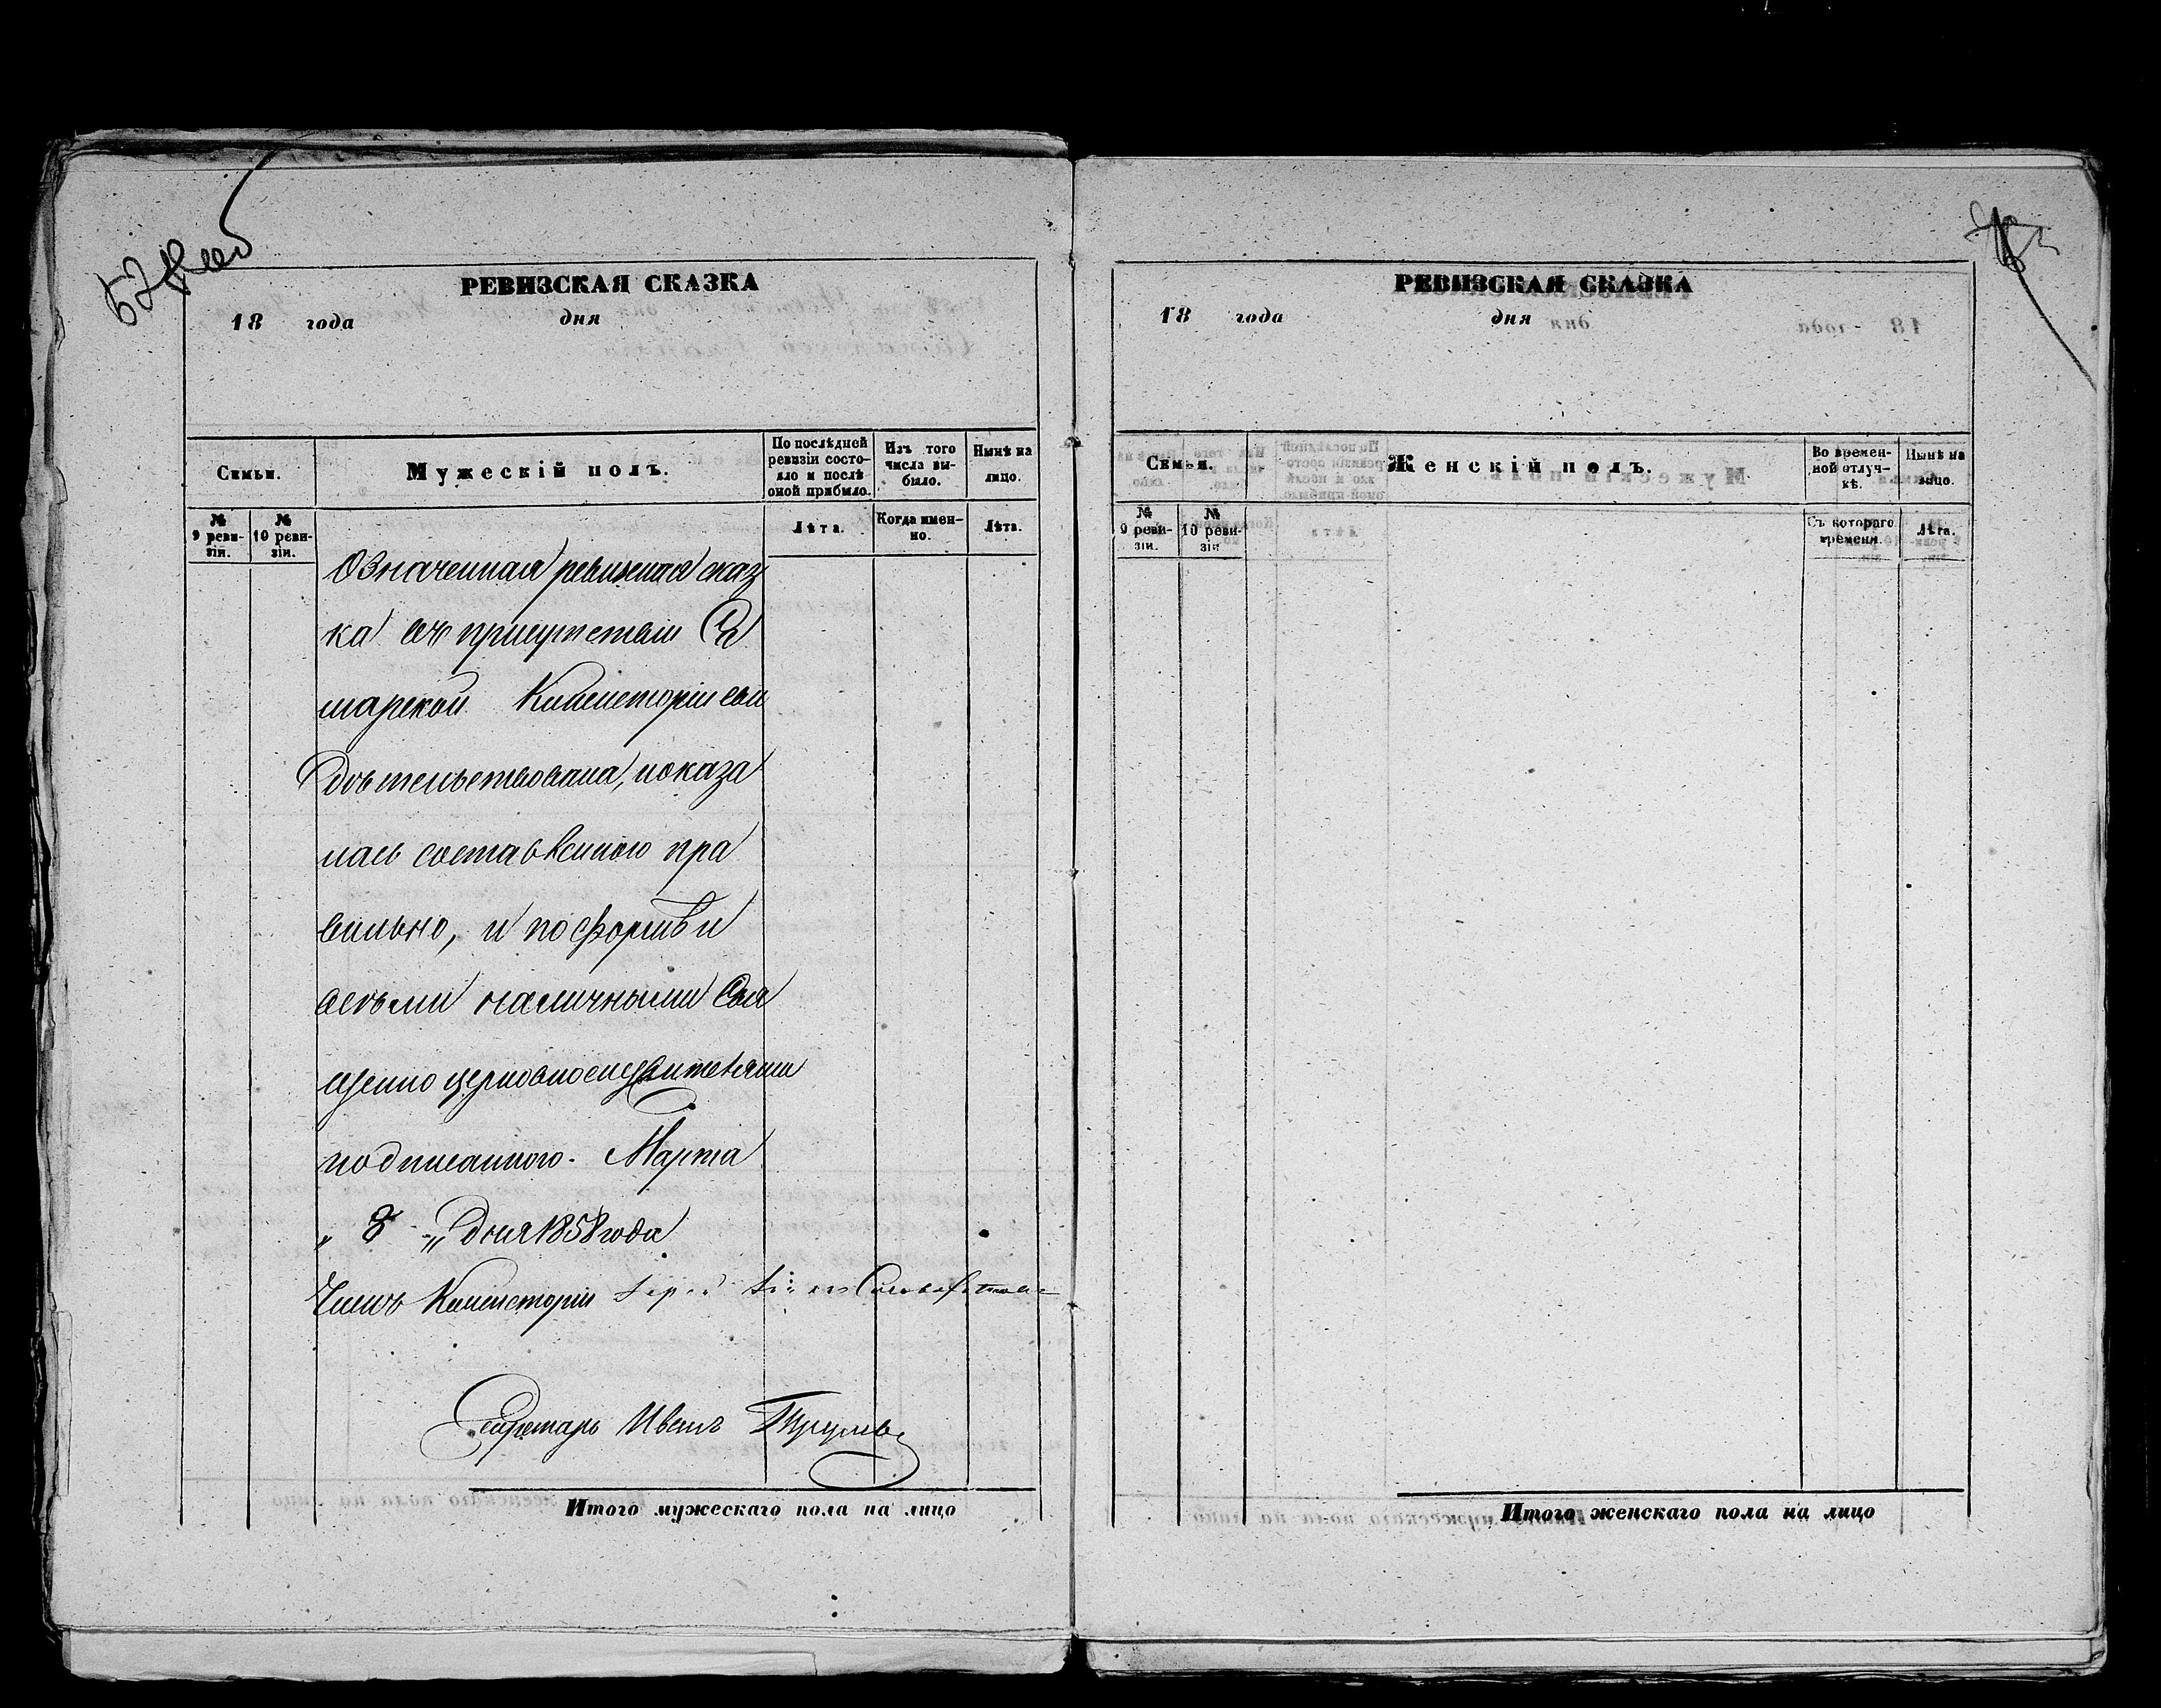 527 об
РЕВИЗСКАЯ СКАЗКА
18 года дня
Семьи.
Мужескій полъ.
По послѣдней ревизіи состояло и послѣ оной прибыло.
Изъ того числа выбыло.
Нынѣ на лицо.
№ 9 ревизіи.
№ 10 ревизіи.
Лѣта.
Когда именно.
Лѣта.
Означенная ревизская сказ
ка въ присутствіи Са
марской Консисторіи сви
дѣтельствована, показа
лась составленною пра
вильно, и по формѣ и
всѣми наличными Свя
щенно церковнослужителями
подписанною. Марта
„ 8 „ дня 1858 года
Членъ Консисторіи
Секретарь Иванъ
Итого мужескаго пола на лицо
РЕВИЗСКАЯ СКАЗКА
18 года дня
Семьи.
Женскій полъ.
Во временной отлучкѣ.
Нынѣ на лицо.
№ 9 ревизіи.
№ 10 ревизіи
Съ котораго времени.
Лѣта.
Итого женскаго пола на лицо